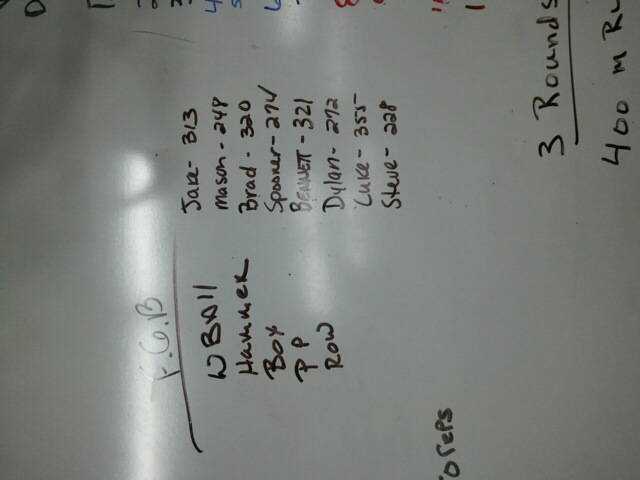 F.G.B
WBAll
Hammer
Box
PP
Row
Jake- 313
Mason - 248
Brad - 320
Spooner- 274
BENNETT - 321
Dylan- 272
Luke - 355
Steve - 228
3 Rounds
400 m Ru
o reps